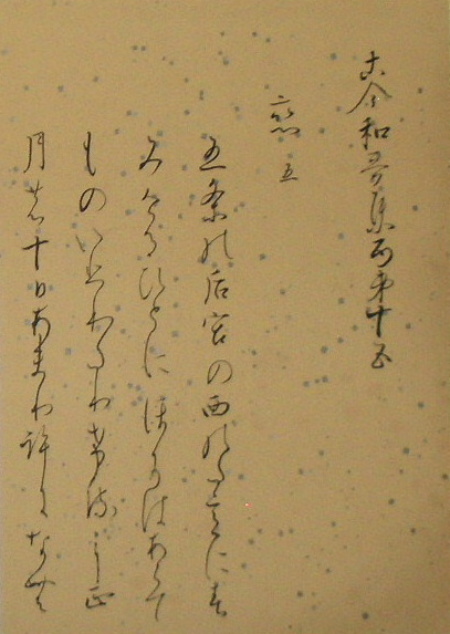 古今和哥集巻第十五
戀五
五条の后宮の西のたいにす
みけるひとにほいにはあらて
ものいひわたりけるを正
月の十日あまり許になむ